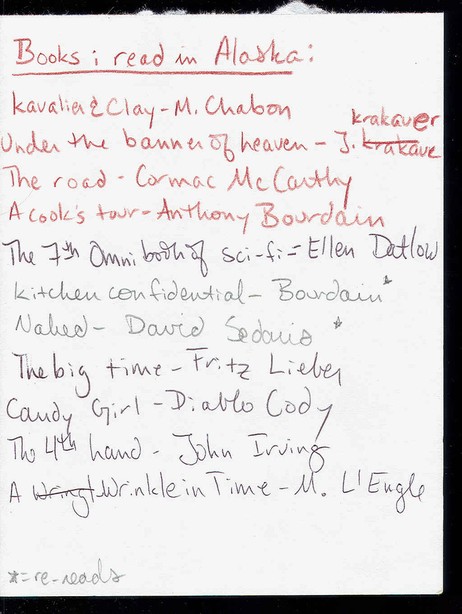 Books i read in Alaska:
kavalier & Clay - M. Chabon
krakauer
Under the banner of heaven - J. krakaue
The road - Cormac McCarthy
A cook's tour - Anthony Bourdain
The 7th Omni book of sci-fi - Ellen Datlow
kitchen confidential - Bourdain*
Naked - David Sedaris *
The big time - Fritz Lieber
Candy Girl - Diablo Cody
The 4th hand - John Irving
A Wringt Wrinkle in Time - M. L'Engle
*= re-reads